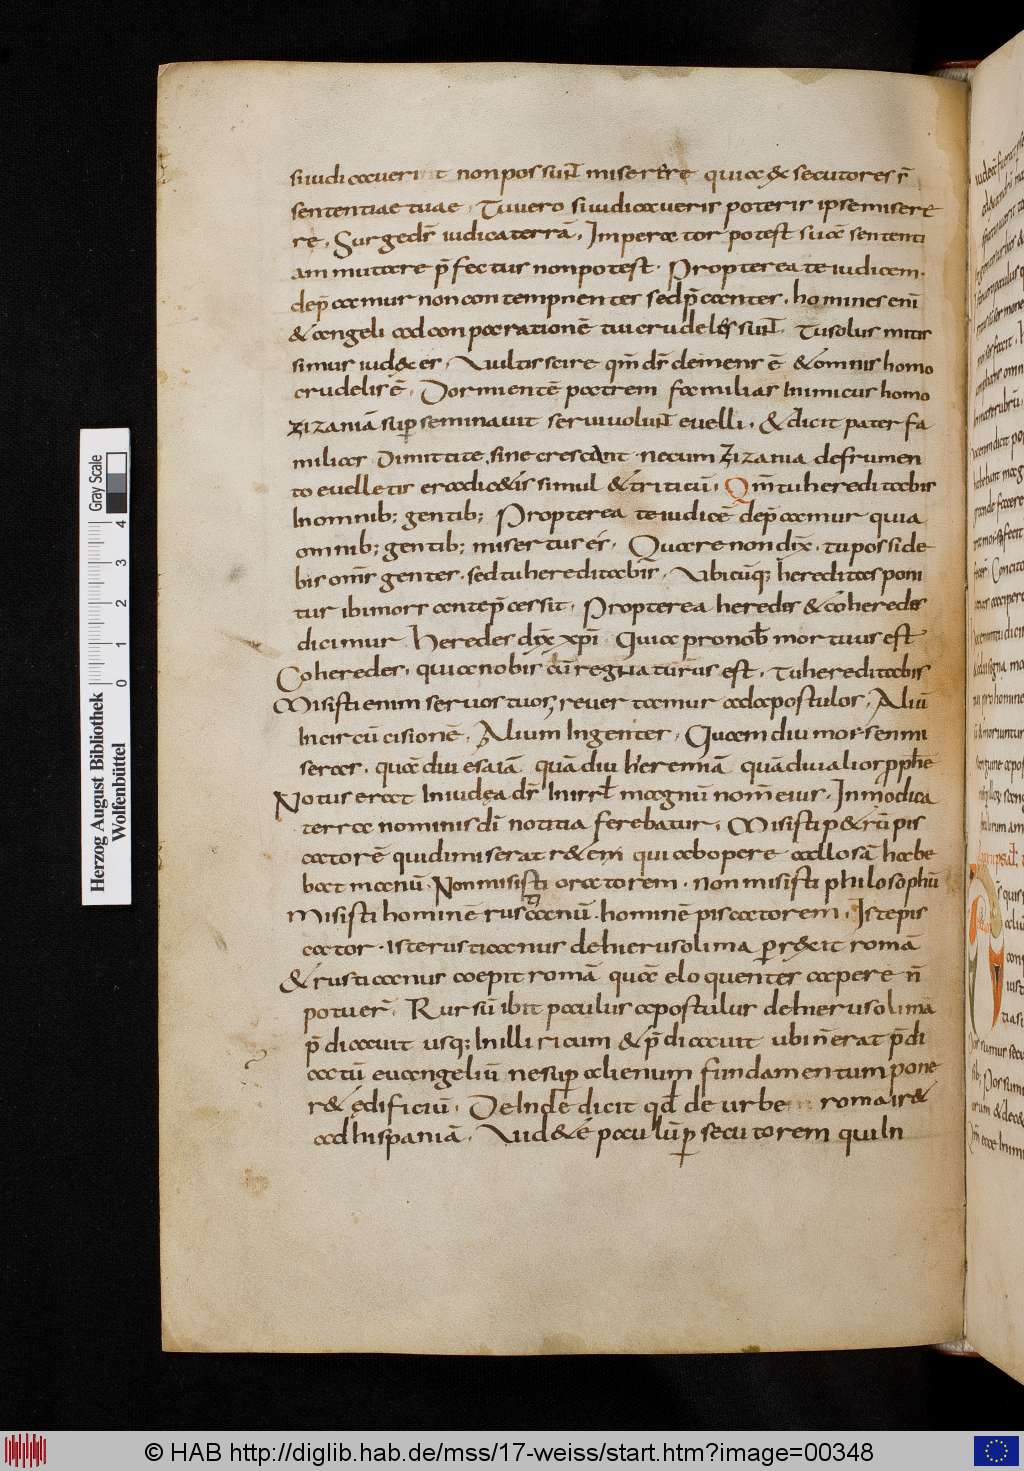 si iudicaverit non possunt miserere quia & secutores s̄
sententiae tuae. Tu vero si iudicaveris poteris ipse misere
re. Surge ds̄ iudica terrā. Imperator potest suā sententi
am mutare p̄fectus non potest. Propterea te iudicem.
dep̄camur non contempnenter sed p̄canter. homines enī
& angeli ad conparationē tui crudeles sunt. Tu solus mitis
simus iud&es. Vultis scire qm̄ ds̄ clemens ē & omnis homo
crudelis ē. Dormientē patrem familias Inimicus homo
zizaniā sup seminavit servi volunt evelli. & dicit pater fa
milias Dimittite sine crescant ne cum zizania de frumen
to evelletis eradic&is simul & triticū. Qm̄ tu hereditabis
In omnib; gentib; Propterea te iudicē dep̄camur quia
omnib; gentib; misertus es. Quare non dix̄. tu posside
bis om̄s gentes. sed tu hereditabis. Ubicūq; hereditas poni
tur ibi mors antep̄cessit. Propterea heredes & coheredes
dicimur Heredes dix̄ xp̄i Quia pro nob̄ mortuus est
Coheredes. quia nobis cū regnaturus est. Tu hereditabis
Misisti enim servos tuos; revertamur ad apostulos. Aliū
In circūcisionē. Alium In gentes. Quem diu morsenmi
seras. quā diu esaiā quā diu hieremiā quā diu alios pph̄e
Notus erat In iudęa ds̄ In isrl̄ magnū nomē eius. In modica
terra nominis dī notitia ferebatur. Misisti p & rū pis
catorē qui dimiserat r&em qui ab opere callosā habe
bat manū. Non misisti oratorem. non misisti philosophū
Misisti hominē rusticanū. hominē piscatorem. Iste pis
cator. iste rusticanus de hierusolima perrexit romā
& rusticanus coepit romā quā eloquentes capere n̄
potuer̄. Rursū ibit paulus apostulus de hierusolimā
p̄dicavit usq; In illiricum & p̄dicavit ubi n̄ erat p̄di
catū euangeliū ne sup alienum fundamentum pone
r& ędificiū. Deinde dicit qd̄ de urbe roma ir&
ad hispaniā. Vid&e paulū p secutorem qui In
Gray Scale
0 1 2 3 4
Herzog August Bibliothek
Wolfenbüttel
© HAB http://diglib.hab.de/mss/17-weiss/start.htm?image=00348